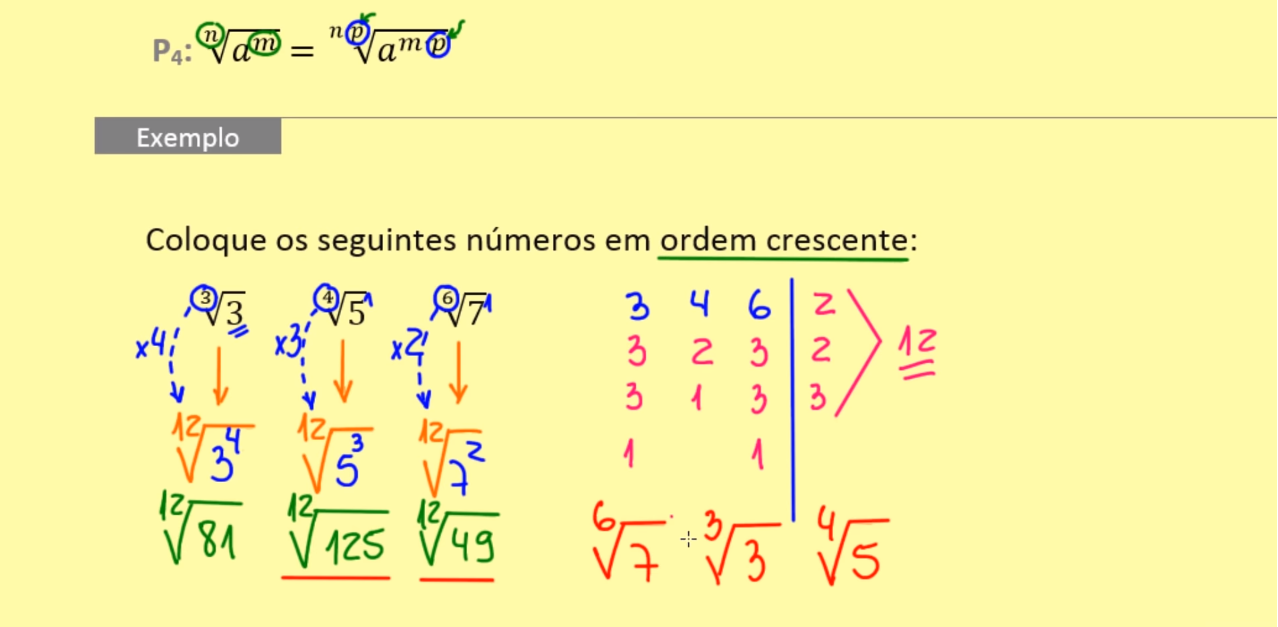 P₄: ⁿ√aᵐ = ⁿᵖ√aᵐᵖ
Exemplo
Coloque os seguintes números em ordem crescente:
³√3 ⁴√5¹ ⁶√7¹
x4 x3 x2
¹²√3⁴ ¹²√5³ ¹²√7²
¹²√81 ¹²√125 ¹²√49
3 4 6 | 2
3 2 3 | 2 12
3 1 3 | 3
1 1
⁶√7 ³√3 ⁴√5